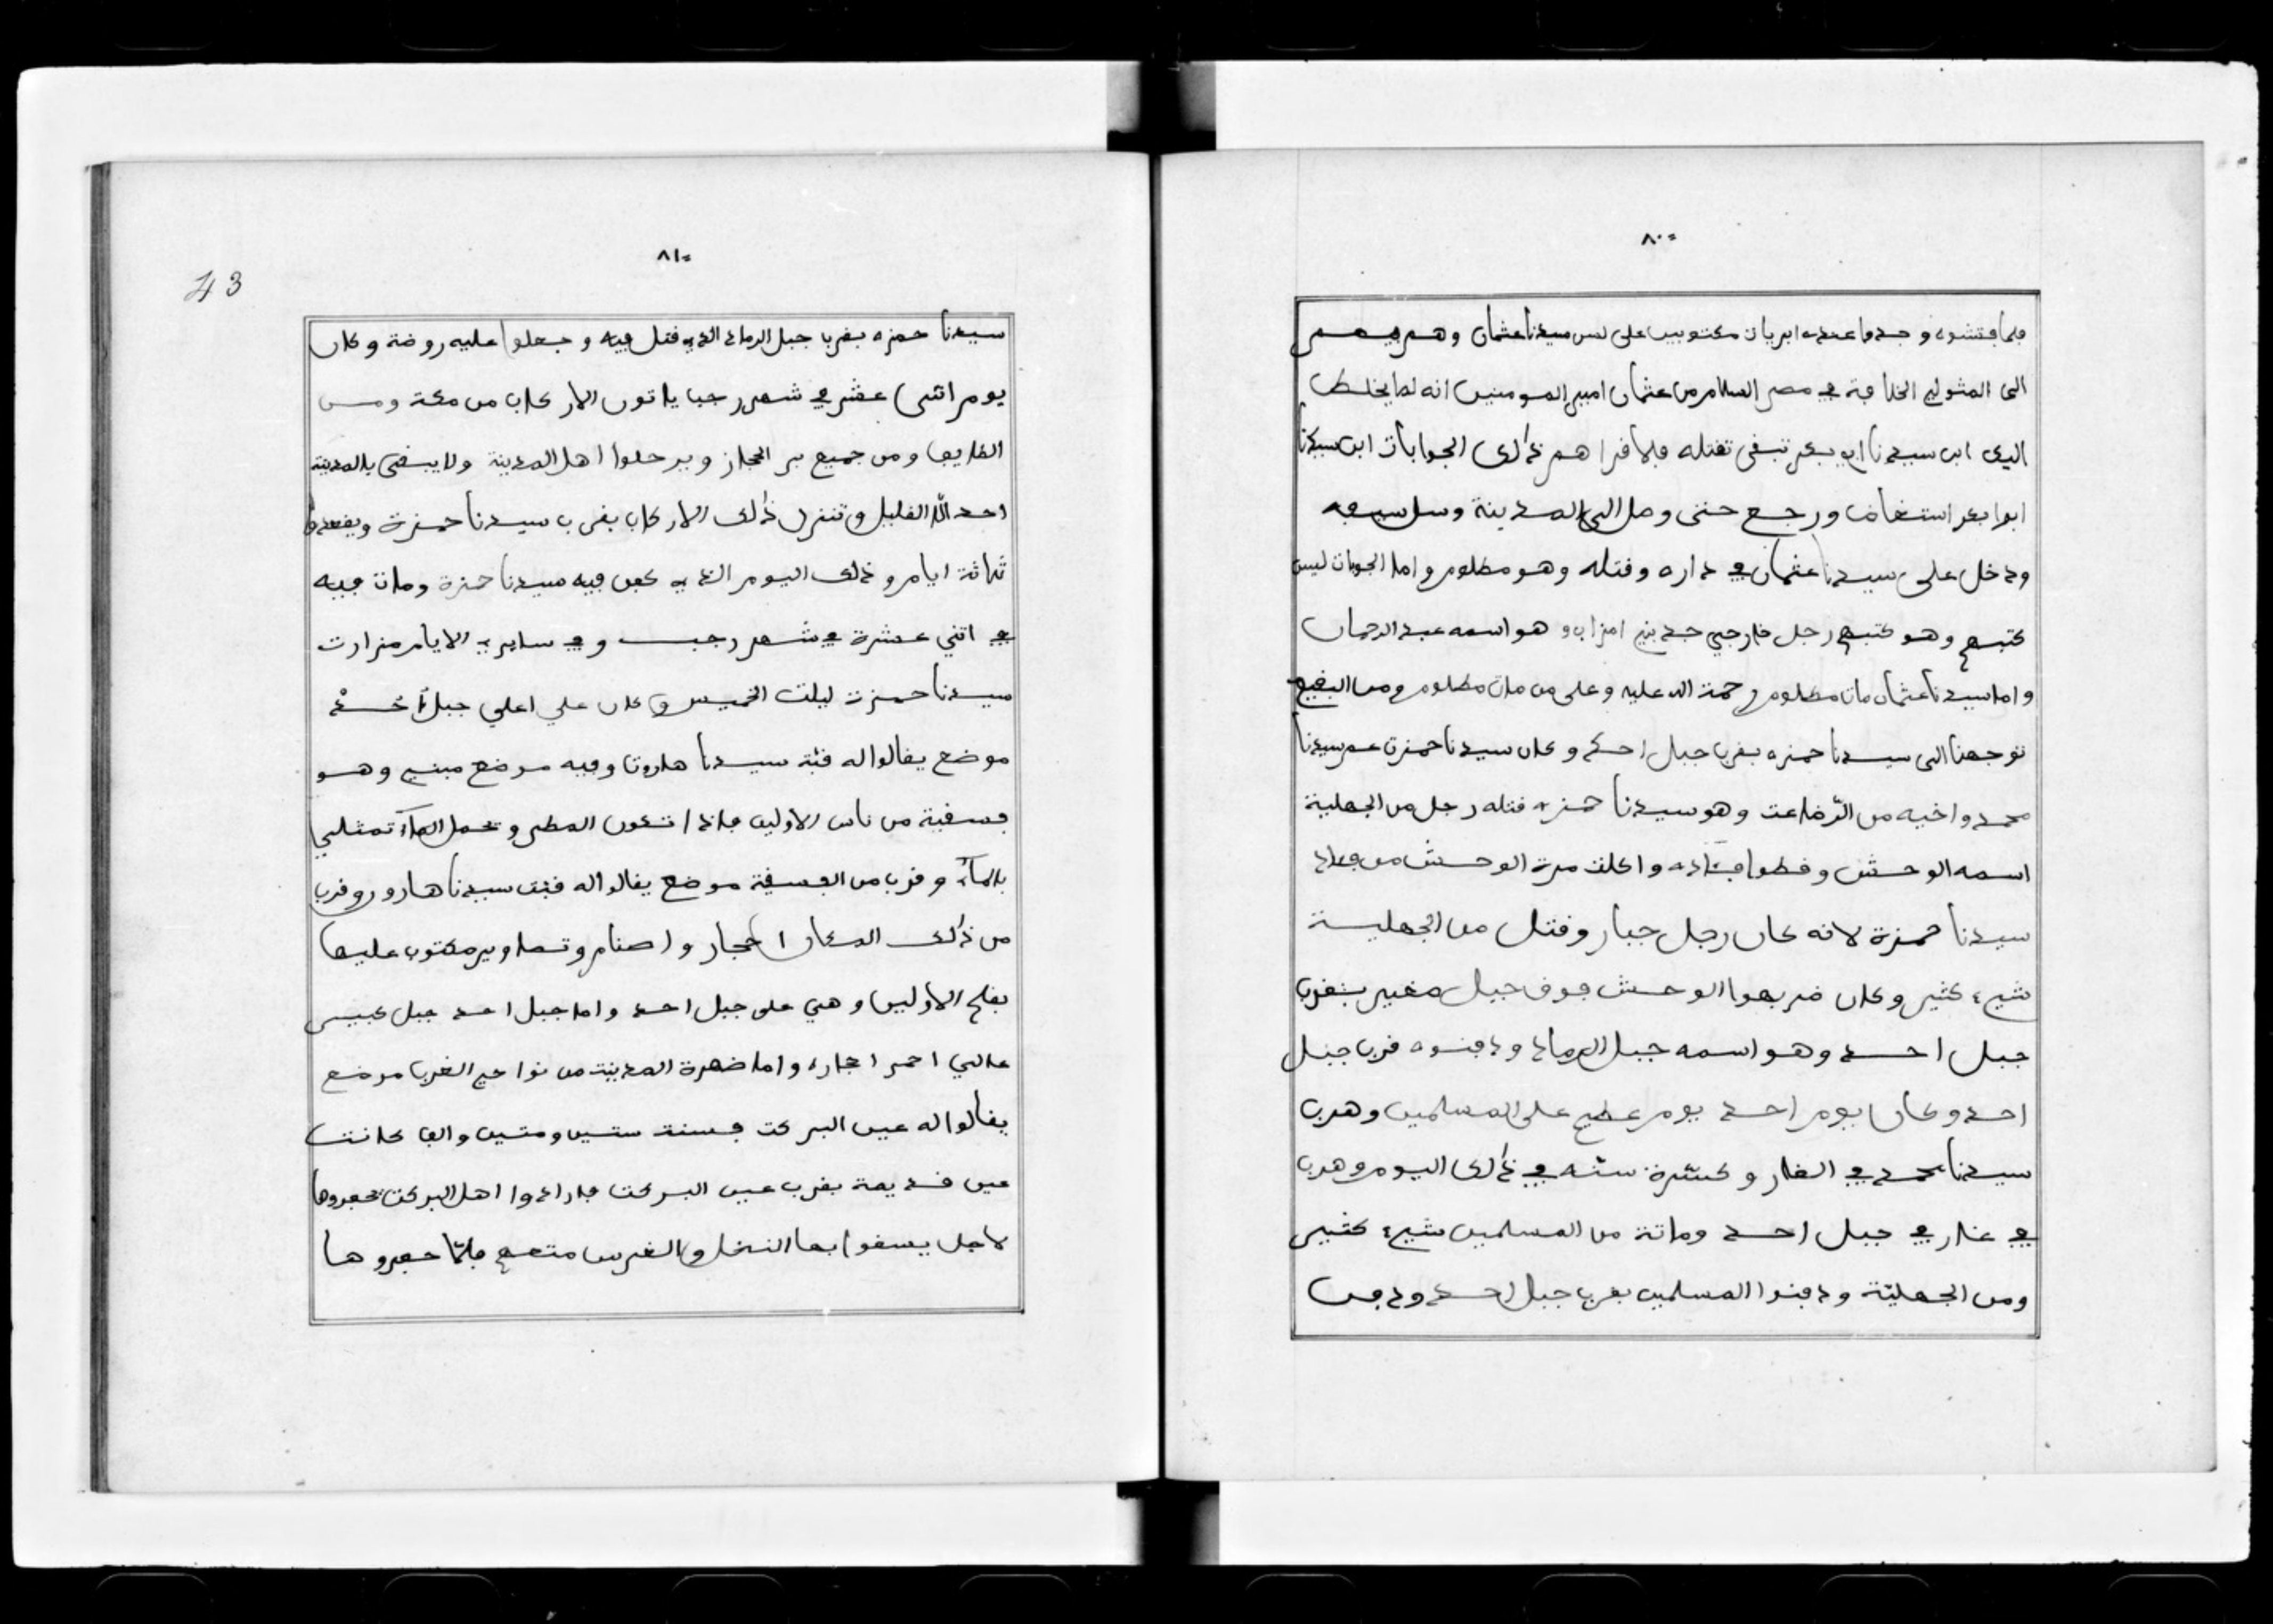 ٨٠
فلما فتشوه وجدوا عنده ابريات مكتوبين على لسن سيدنا عثمان وهم
الى المثولي الخلافة في مصر السلام من عثمان امير المومنين انه لما يخلط
اليك ابن سيدنا ابي بكر تبقى تقتله فلما قراهم ذٰلك الجوابات ابن سيدنا
ابوا بكر استغاض ورجع حتى وصل الى المدينة وسل سيفه
ودخل على سيدنا عثمان في داره وقتله وهو مظلوم واما الجوبات ليس
كتبهم وهو كتبهم رجل خارجي جد بني امزاب وهو اسمه عبد الرحمان
واما سيدنا عثمان مات مظلوم رحمة الله عليه وعلى من مات مظلوم ومن البقيع
توجهنا الى سيدنا حمزه بقرب جبل احد وكان سيدنا حمزت عم سيدنا
محمد واخيه من الرّضاعت وهو سيدنا حمزه قتله رجل من الجهلية
اسمه الوحش وفطوا فئاده واكلت مرة الوحش من فواد
سيدنا حمزة لانه كان رجل جبار وقتل من الجهلية
شيء كثير وكان ضربهوا الوحش فوق جبل صغير بقرب
جبل احد وهو اسمه جبل الرماد ودفنوه قرب جبل
احد وكان يوم احد يوم عظيم على المسلمين وهرب
سيدنا محمد في الغار وكسّرة سنّه في ذٰلك اليوم وهرب
في غار في جبل احد وماتة من المسلمين شيء كثير
ومن الجهليّة ودفنوا المسلمين بقرب جبل احد ودفن
٨١
43
سيدنا حمزه بقرب جبل الرماد الذي قتل فيه وجعلوا عليه روضة وكان
يوم اثنى عشر في شهر رجب ياتون الاركاب من مكة ومن
الطايف ومن جميع بر الحجاز ويرحلوا اهل المدينة ولا يبقى بالمدينة
احد الّا القليل وتنزل ذٰلك الاركاب بقرب سيدنا حمزة ويقعدوا
ثلاثة ايام وذلك اليوم الذي كعن فيه سيدنا حمزة ومات فيه
في اثني عشرة في شهر رجب وفي ساير الايام مزارت
سيدنا حمزت ليلت الخميس وكان علي اعلي جبل اُحُدْ
موضع يقالوا له قبّة سيدنا هارون وفيه موضع مبني وهو
فسقية من ناس الاولين فاذا تكون المطر وتحمل المآء تمثلي
بالمآء وقرب من الفسقية موضع يقالوا له قبّت سيدنا هارون وقرب
من ذٰلك المكان احجار واصنام وتصاوير مكتوب عليها
بقلم الاولين وهي على جبل احد واما جبل احد جبل كبير
عالي احمر احجاره واما ضهرة المدينة من نواحي الغرب موضع
يقالوا له عين البركت فسنة ستين ومتين والف كانت
عين قديمة بقرب عين البركت فارادوا اهل البركت يحفروها
لاجل يسقوا بها النخل والغرس متعهم فلمّا حفروها